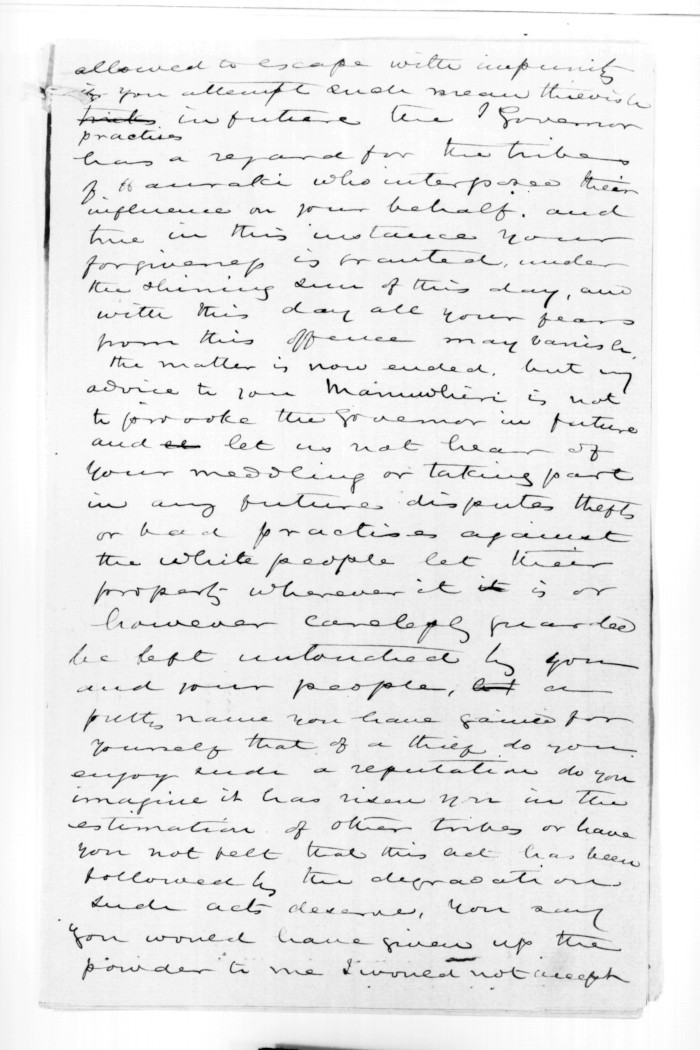 allowed to escape with impunity
if you attempt such mean thievish
tricks in future the Governor
practises
has a regard for the tribes
of Hauraki who interposee their
influence on your behalf. and
true in this instance your
forgiveness is granted, under
the shining sun of this day, and
with this day all your fears
from this offence may vanish,
the matter is now ended, but my
advice to you Mainuwhiri is not
to provoke the Governor in future
and let us not hear of
your meddling or taking part
in any future disputes thefts
or bad practises against
the white people let their
property wherever it it is or
however carelessly guarded
be left untouched by you
and your people, but a
pretty name you have gained for
yourself that of a thief, do you
enjoy such a reputation do you
imagine it has risen you in the
estimation of other tribes or have
you not felt that this act has been
followed by the degradation
such acts deserve, You say
you would have given up the
powder to me I would not accept